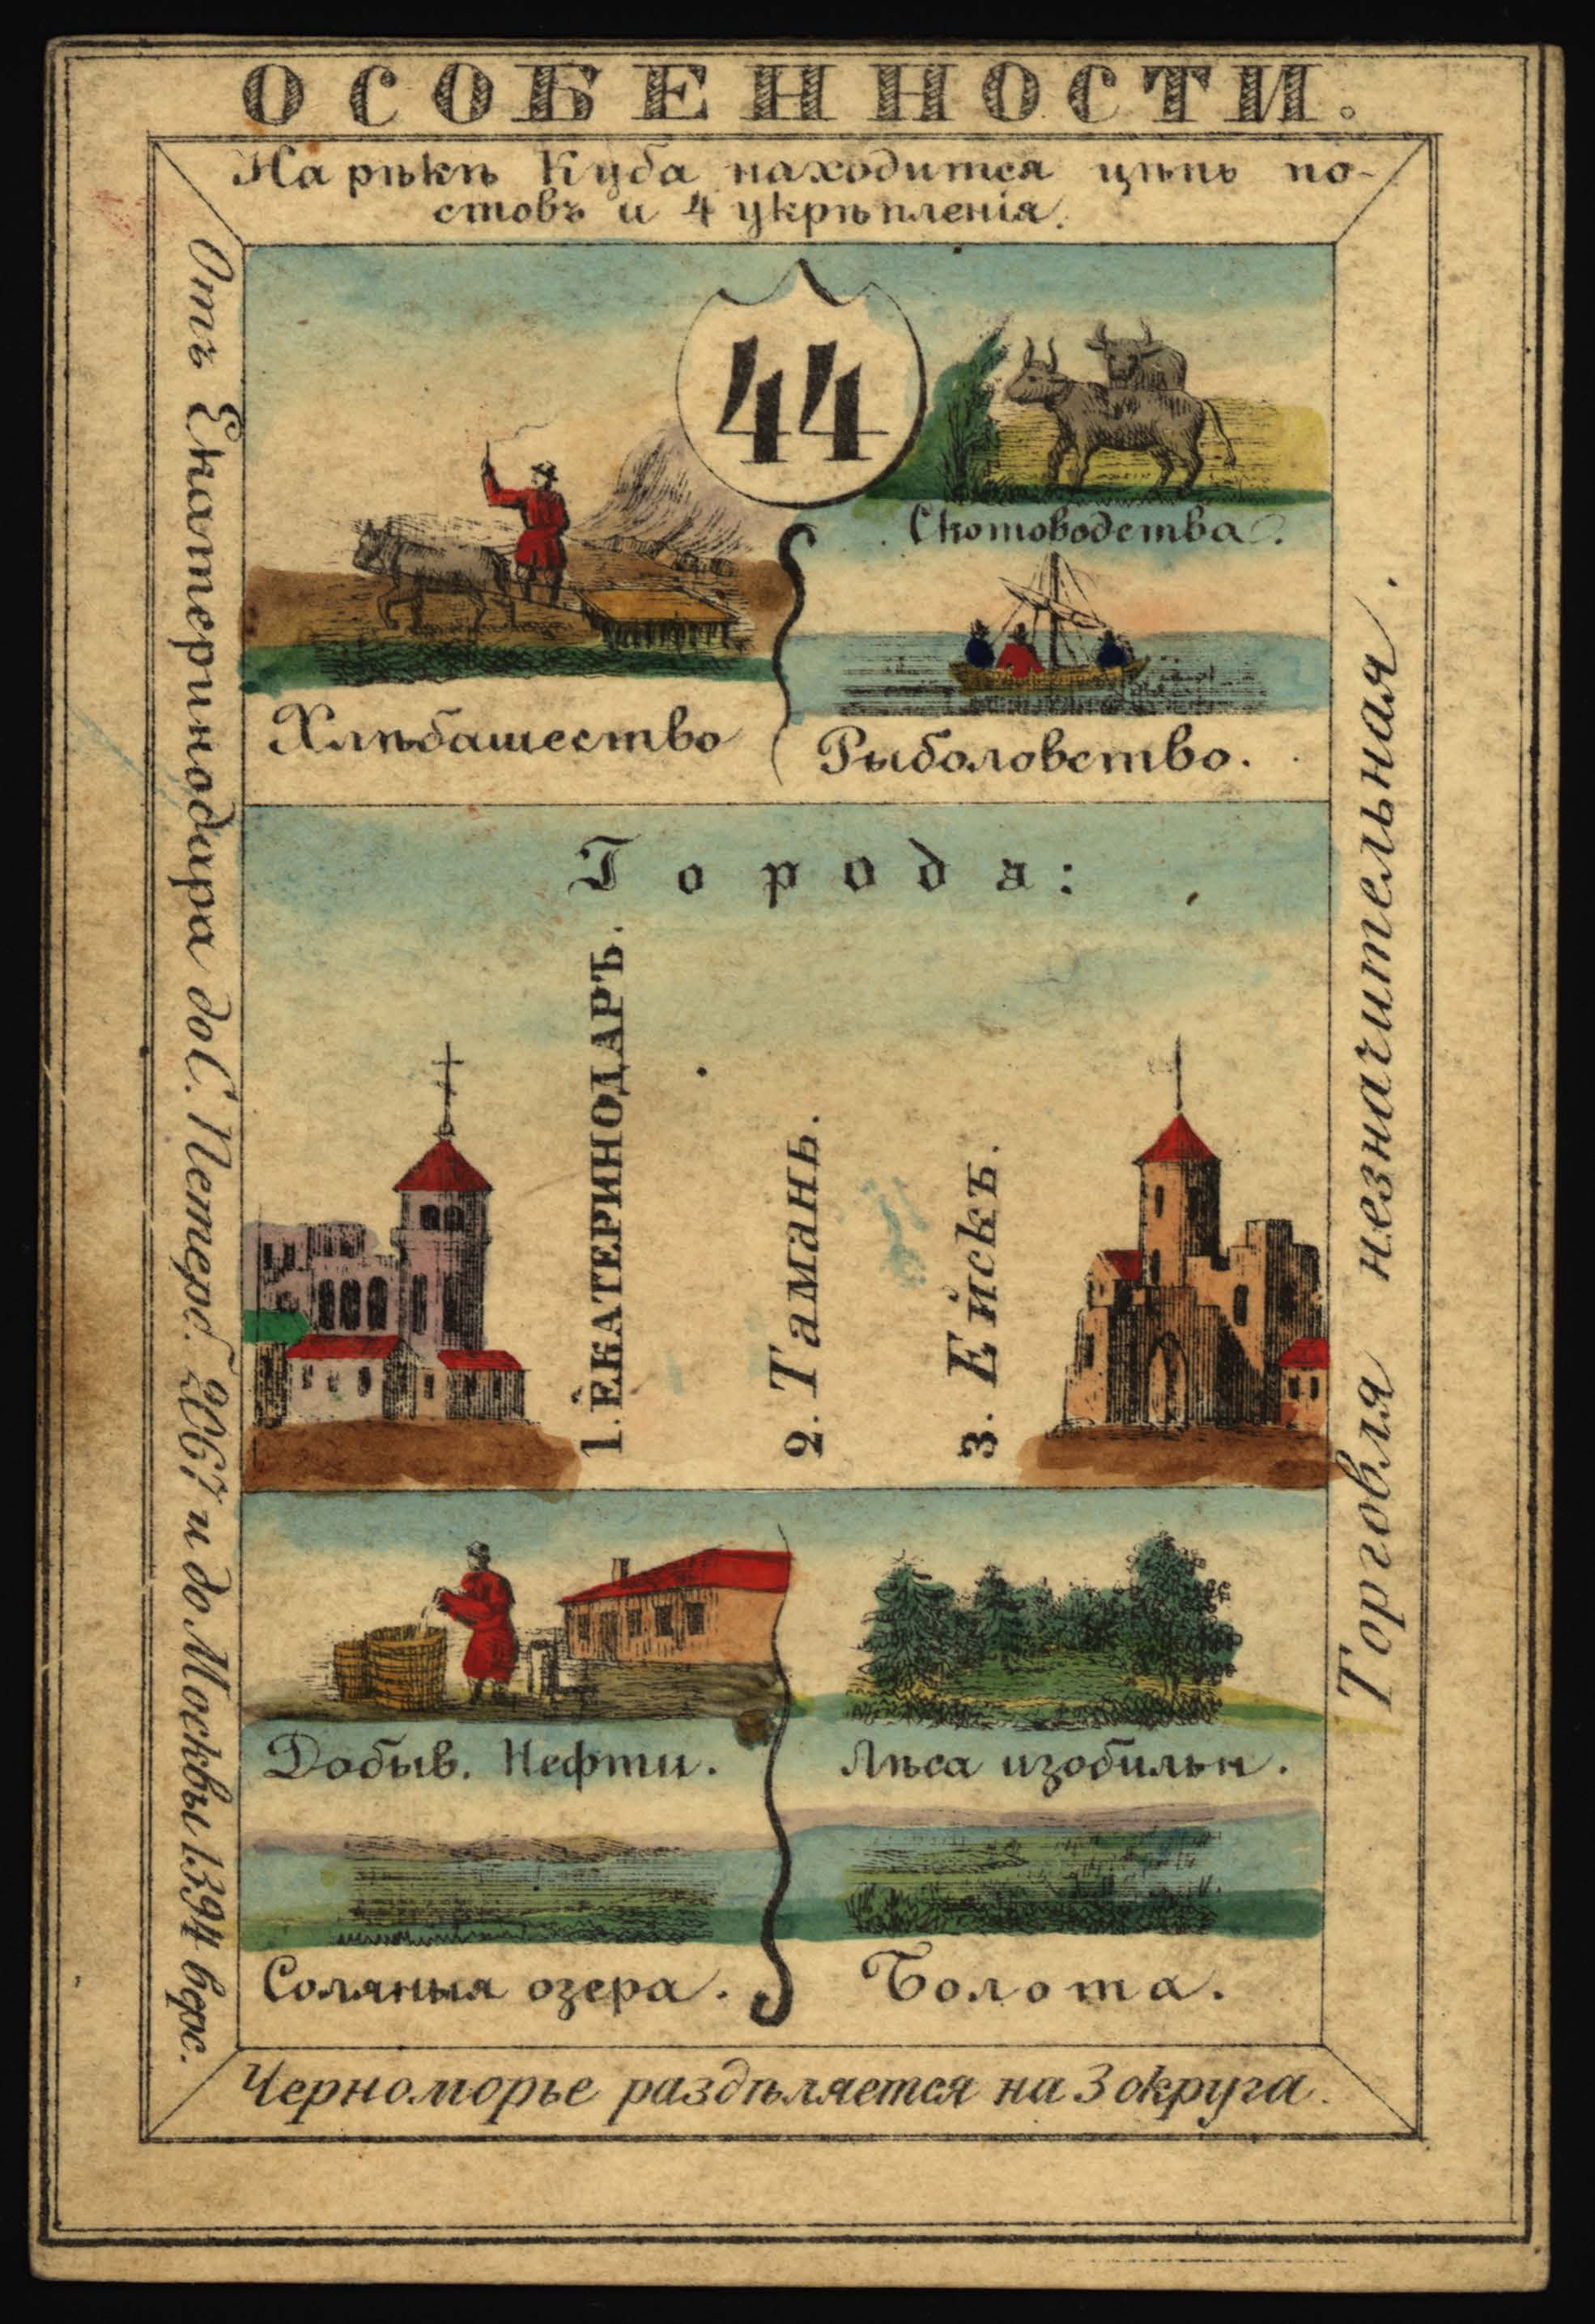 ОСОБЕННОСТИ.
На рѣкѣ Куба находится цѣпь по-
стовъ и 4 укрѣпленія.
Отъ Екатеринодара до С. Петерб. 2067 и до Москвы 1394 верс.
44
Скотоводства.
Хлѣбашество
Рыболовство.
Города:
1. ЕКАТЕРИНОДАРЪ.
2. Тамань.
3. Ейскъ.
Добыв. Нефти.
Лѣса изобильн.
Соляныя озера.
Болота.
Торговля незначительная.
Черноморье раздѣляется на 3 округа.